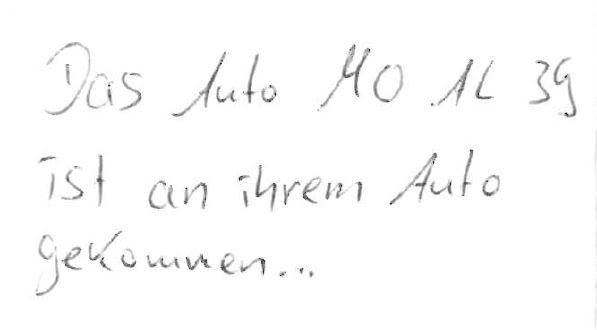 Das Auto MO AL 39
ist an ihrem Auto
gekommen...